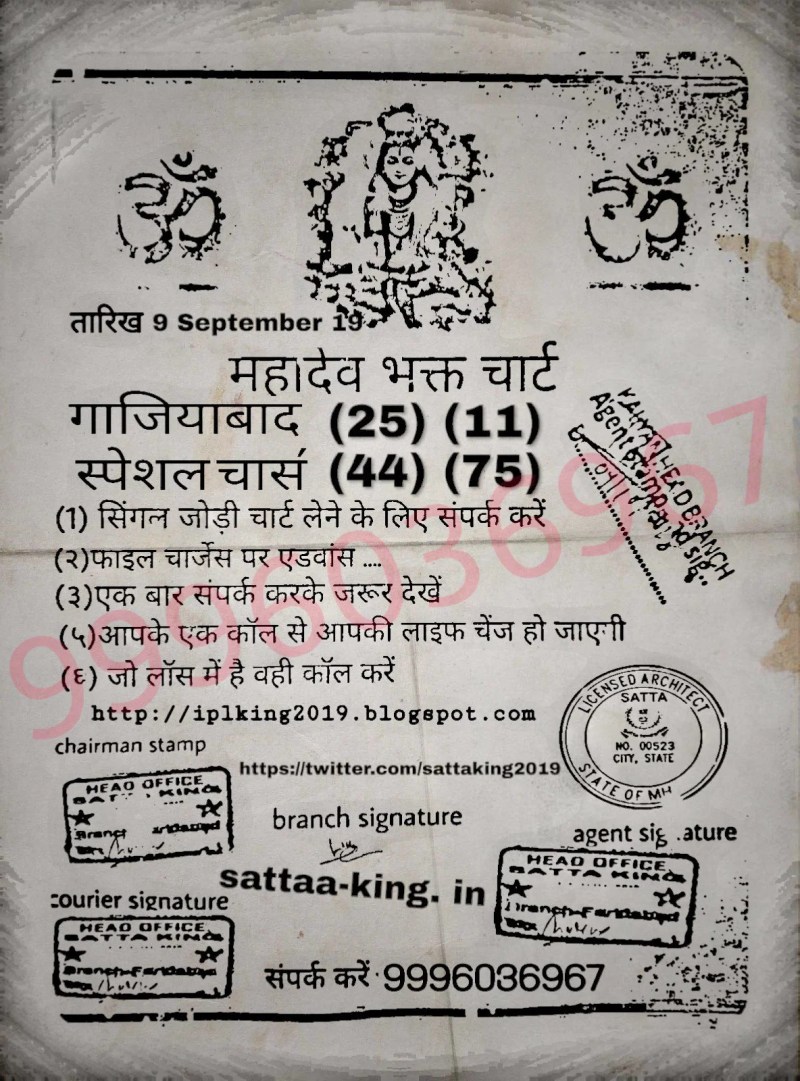 तारिख 9 September 19
महादेव भक्त चार्ट
गाजियाबाद (25) (11)
स्पेशल चार्स (44) (75)
(1) सिंगल जोड़ी चार्ट लेने के लिए संपर्क करें
(२)फाइल चार्जेस पर एडवांस ....
(३)एक बार संपर्क करके जरूर देखें
(५)आपके एक कॉल से आपकी लाइफ चेंज हो जाएगी
(६) जो लॉस में है वही कॉल करें
http://iplking2019.blogspot.com
9996036967
HEAD BRANCH
Agent stamp and sig..
LICENSED ARCHITECT
SATTA
NO. 00523
CITY, STATE
STATE OF MH
chairman stamp
https://twitter.com/sattaking2019
HEAD OFFICE
branch signature
agent sig .ature
sattaa-king. in
HEAD OFFICE
SATTA KING
Branch-Faridabad
courier signature
HEAD OFFICE
SATTA KING
Branch-Faridabad
संपर्क करें 9996036967